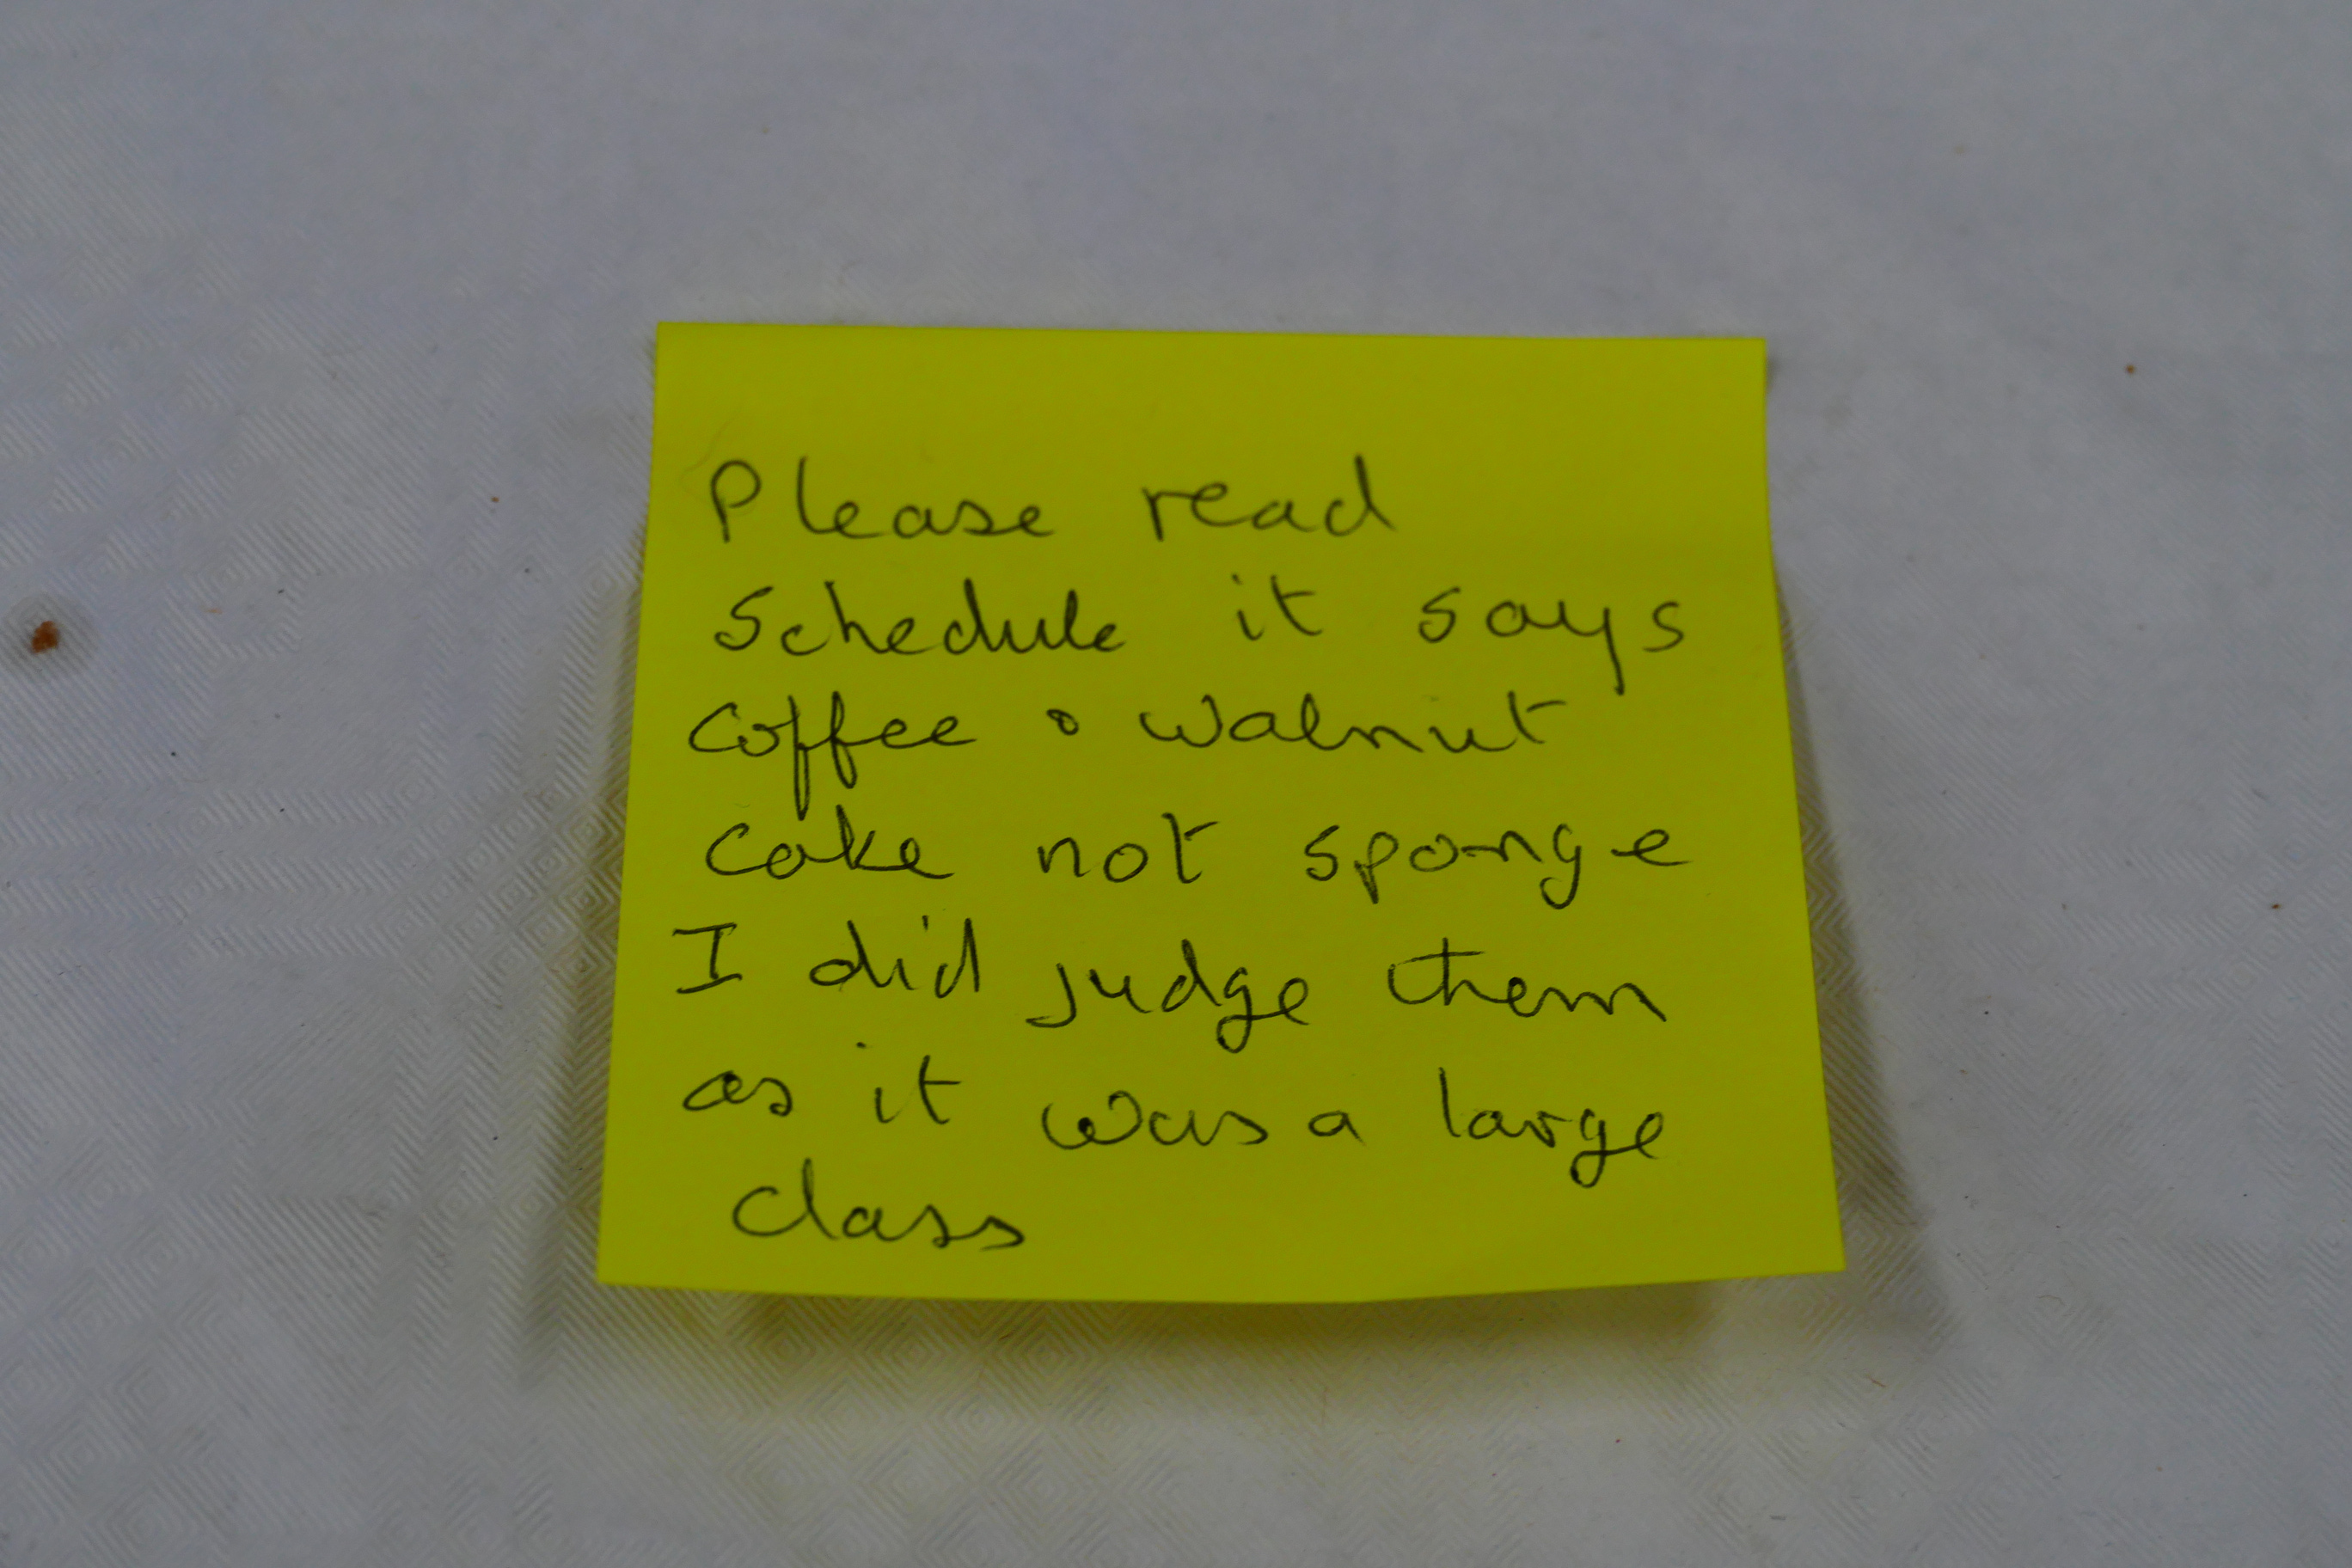 Please read
Schedule it says
Coffee & walnut
cake not sponge
I did judge them
as it was a large
class